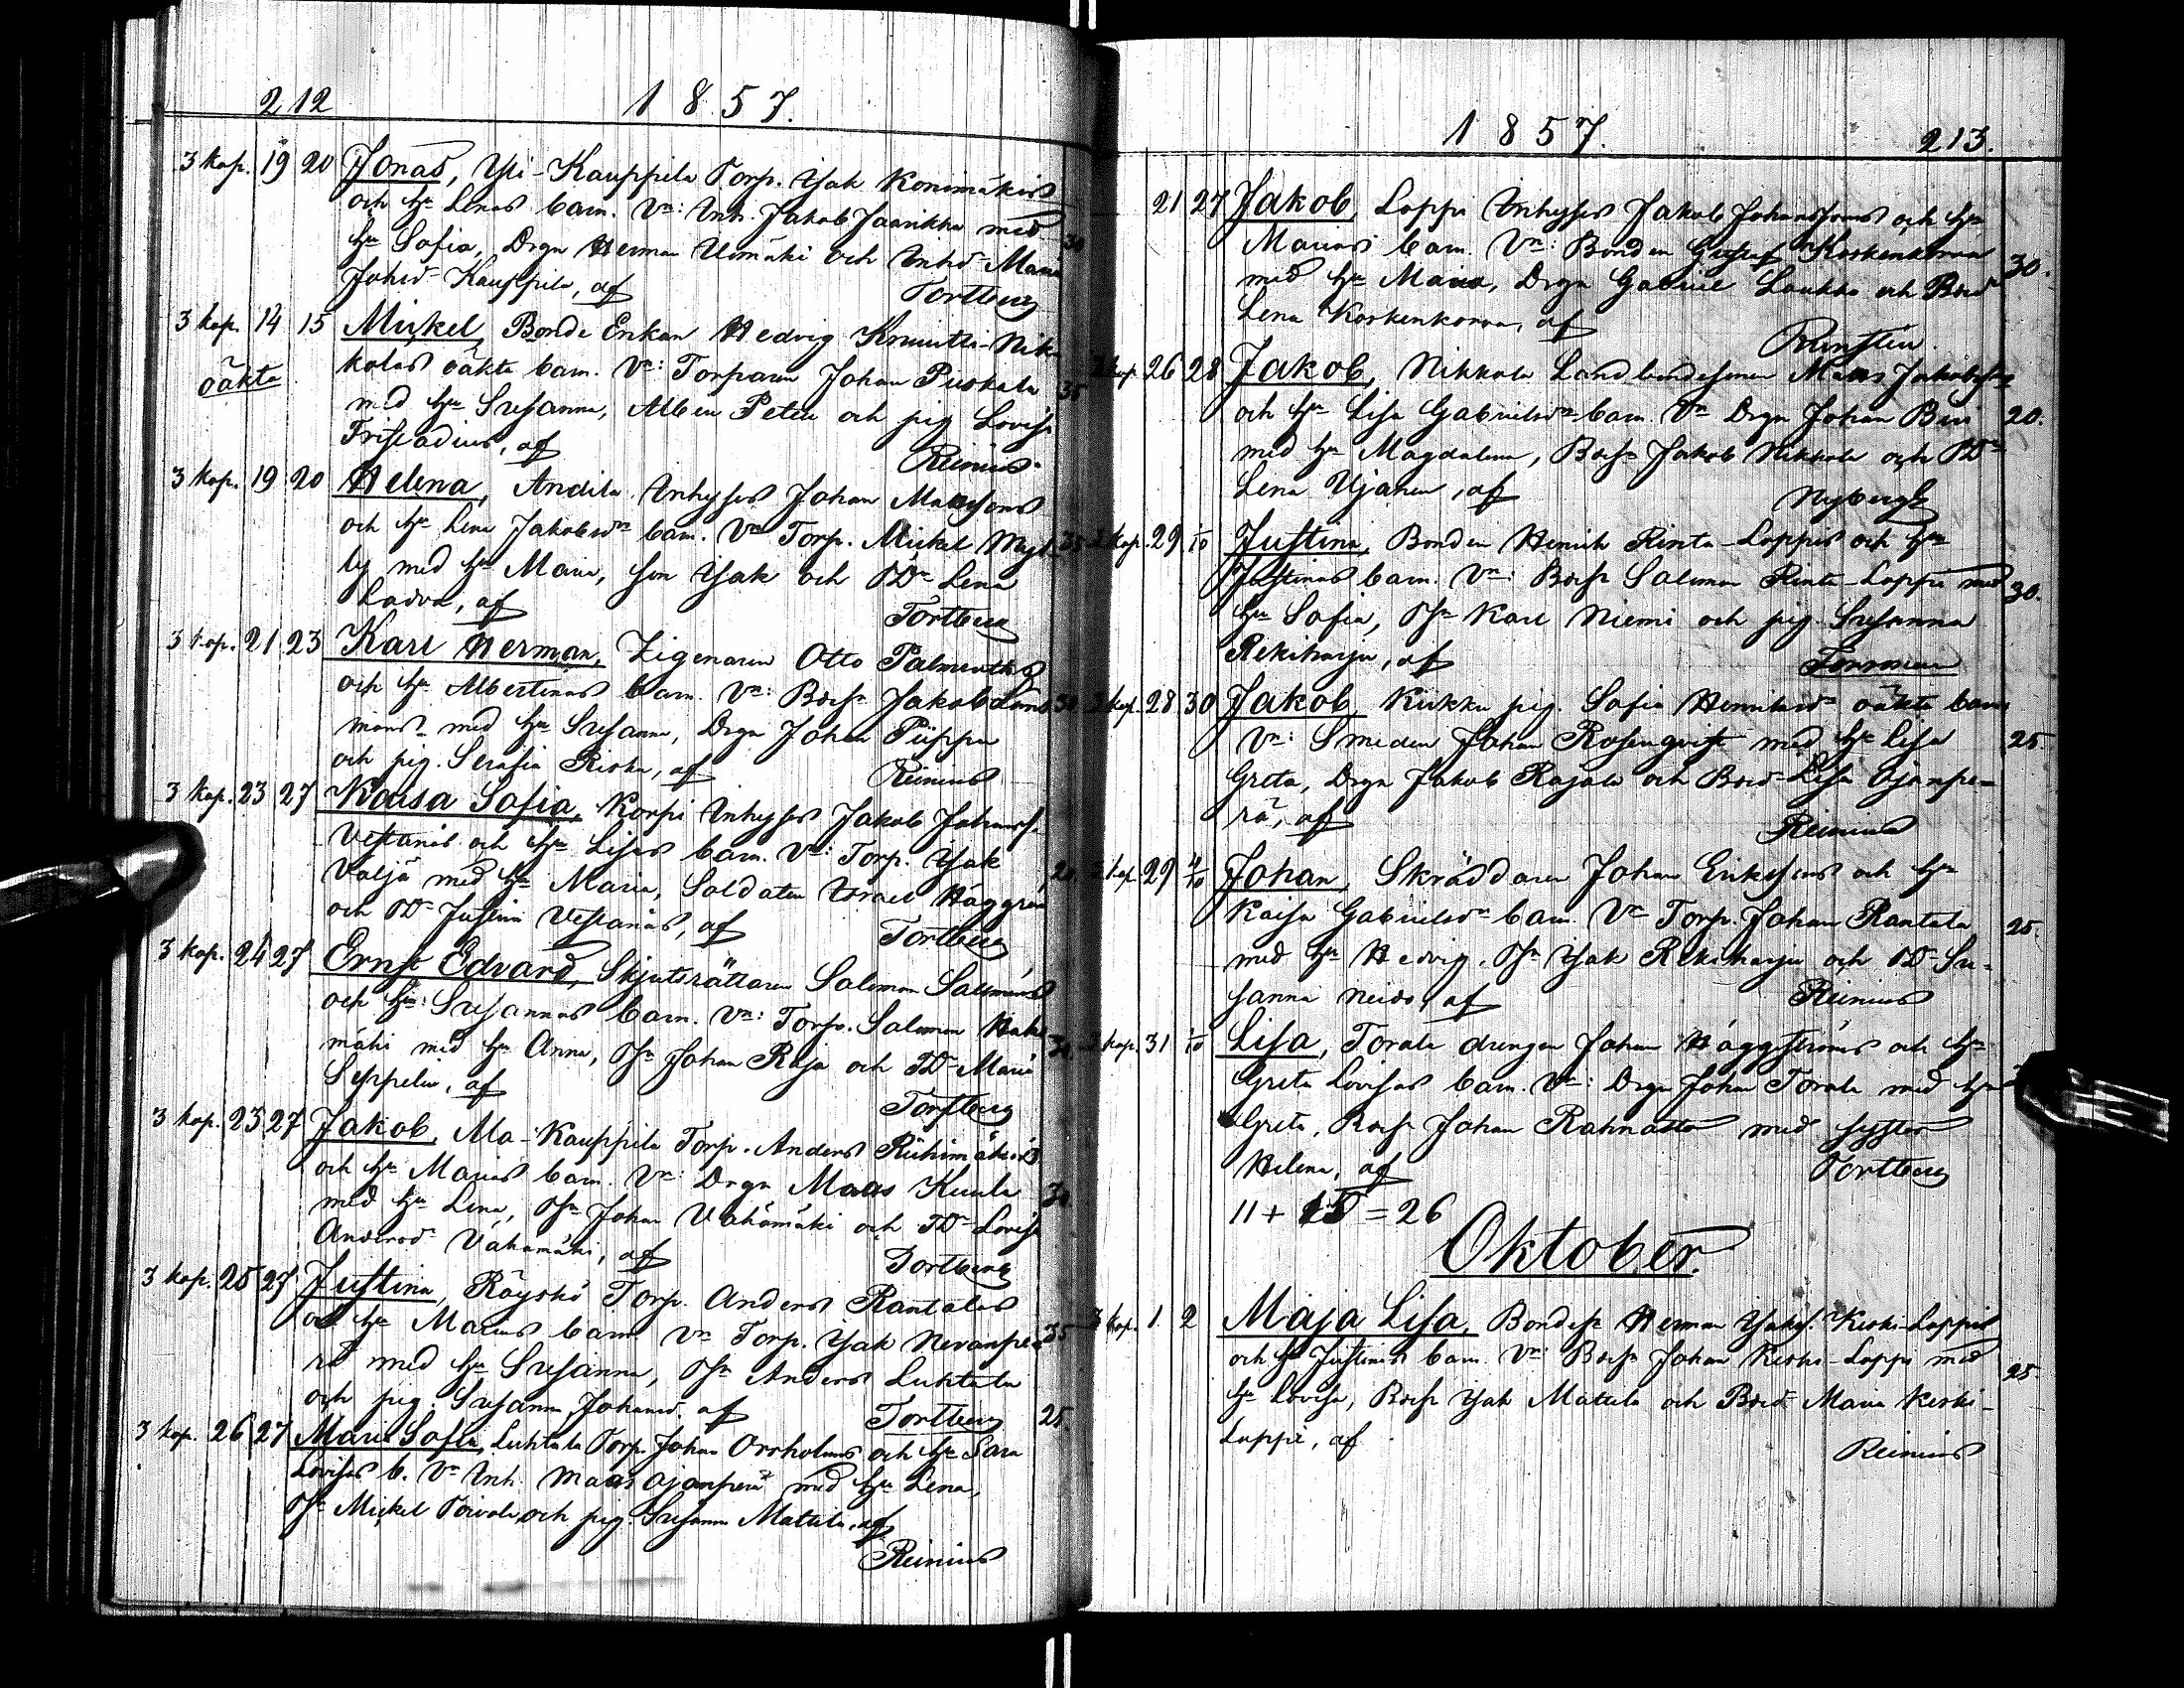 212
1857.
3 kop. 19 20 Jonas, Yli-Kauppila Torp. Isak Konimäkis
och hu Lenas barn. Vn: Inh. Jakob Jaarikka med
hu Sofia, Drgn Herman Uimäki och Inhd Maria 30
Johsd Kauppila, af Tortberg
3 kop. 14 15 Mickel, Bonde Enkan Hedvig Knuutti-Nik-
oäkta kolas oäkta barn. Vn: Torparen Johan Puskala 35
med hu Susanna, Alben Peter och pig. Lovisa
af
Reinius
3 kop. 19 20 Helena, Andila Inhyses Johan Matssons
och hu Lena Jakobsdrs barn. Vn Torp. Mickel 35
med hu Maria, son Isak och TDr Lena
Ladva, af
Tortberg
3 kop. 21 23 Karl Herman, Zigenaren Otto Palmroths
och hu Albertinas barn. Vn: Bosn Jakob Länts 30
mans med hu Susanna, Drgn Johan Piippu
och pig. Serafia Riska, af
Reinius
3 kop. 23 27 Kaisa Sofia, Korpi Inhyses Jakob Johanss.
Vestanis och hu Lisas barn. Vn: Torp. Isak
Valjä med hu Maria, Soldaten Israel Häggren 20.
och TDr Justina Vestanis, af
Tortberg
3 kop. 24 27 Ernst Edvard, Skjutsrättaren Salomon Sallmens
och hu: Susannas barn. Vn: Torp. Salomon
mäki med hu Anna, TSn Johan Raja och TDr Maria 30.
Seppelin, af
Tortberg
3 kop. 23 27 Jakob, Ala-Kauppila Torp. Anders Riihimäkis
och hu Marias barn. Vn: Drgn Maas Kuula 30.
med hu Lena, TSn Johan Vähämäki och TDr Lovisa
Andersd Vähämäki, af
Tortberg
3 kop. 25 27 Justina, Räyskö Torp. Anders Rantalas
och hu Marias barn Vn Torp. Isak Nevanpe- 35
rä med hu Susanna, TSn Anders Luhtala
och pig. Susanna Johansd. af Tortberg 25.
3 kop. 26 27 Maria Sofia, Luhtala Torp. Johan Orrholms och hu Sara
Lovisas b. Vn Inh. Maas Ojanperä med hu Lena,
TSn Mickel Torvala och pig. Susanna Mattila, af
Reinius
1857.
213.
21 27 Jakob, Loppi Inhyses Jakob Johanssons och hu
Marias barn. Vn: Bonden Gustaf Koskenkorva 30.
med hu Maria, Drgn Gabriel Laukko och Bosd
Lena Koskenkorva, af
3 kop. 26 28 Jakob, Nikkola Landbondesonen Maas Jakobsons
och hu Lisa Gabrielsdrs barn. Vn Drgn Johan 20.
med hu Magdalena, Bosn Jakob Nikkola och TDr
Lena Ujainen, af
Nyberg
3 kop. 29 1/10 Justina, Bonden Henrik Rinta-Loppis och hu
Justinas barn. Vn: Bosn Salomon Rinta-Loppi med 30.
hu Sofia, TSn Karl Niemi och pig. Susanna
Rekiharju, af
3 kop. 28 30 Jakob, Kukku pig. Sofia Henriksds oäkta barn
Vn: Smeden Johan Rosenqvist med hu Lisa 25
Greta, Drgn Jakob Rajala och Bosd Lisa Ojanpe-
rä, af
Reinius
3 kop. 29 4/10 Johan, Skräddaren Johan Erikssons och hu
Kaisa Gabrielsdrs barn. Vn Torp. Johan Rantala 25.
med hu Hedvig. TSn Isak Rekiharju och TDr Su-
sanna Neiro, af
Reinius
3 kop. 31 1/10 Lisa, Torala drengen Johan Häggströms och hu
Greta Lovisas barn. Vn: Drgn Johan Torala med hu
Greta, Bosn Johan Rahnasto med syster
Helena, af
Tortberg
11 + 15 = 26
Oktober.
3 kop. 1 2 Maja Lisa, Bondesn Herman Isaks. Keski-Loppis
och hu Justinas barn. Vn: Bosn Johan Keski-Loppi med 25.
hu Lovisa, Bosn Isak Mattila och Bosd Maria Keski-
Loppi, af
Reinius